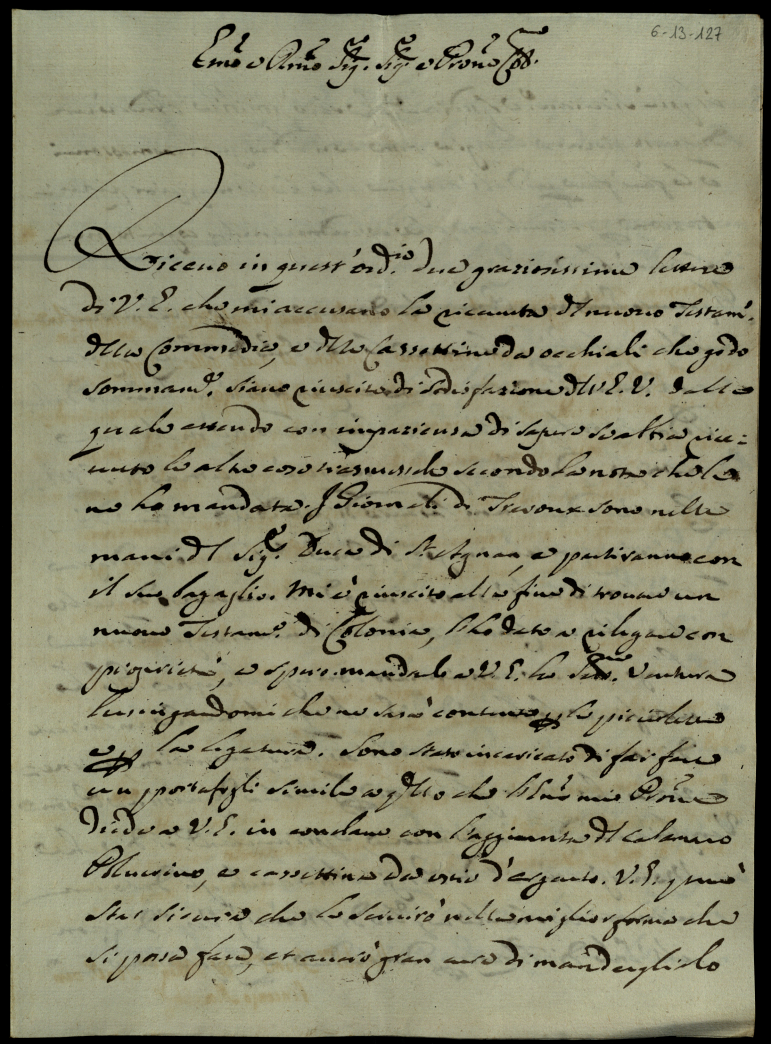 6-13-127
Emo e Rmo Sig. Sig. e Prone Col.
Ricevo in quest'ord.io due graziosissime lettere
di V. E. che mi accusano la ricevuta del nuovo Testam.
della Commedia, e delle Cassettine da occhiali che godo
sommam. siano riuscite di sodisfazione dell'E. V. dalla
quale attendo con impazienza di sapere se abbia rice=
vuto le altre cose trasmessele secondo la nota che le
ne ho mandata. I Giornali di Trevoux sono nelle
mani del Sig. Duca di St Aignan, e partiranno con
il suo bagaglio. Mi è riuscito alla fine di trovare un
nuovo Testam. di Colonia, l'ho dato a rilegare con
proprietà, e spero mandarlo a V. E. la Sett. ventura
lusingandomi che ne sarà contenta per la picciolezza
e per la legatura. Sono stato incaricato di far fare
un portafogli simile a qllo che l'Emo mio Prone
diede a V. E. in conclave con l'aggiunta del calamaro
Polverino, e cassettina da ostie d'argento. V. E. può
star sicura che la servirò nella miglior forma che
si possa fare, et averò gran cura di mandarglielo